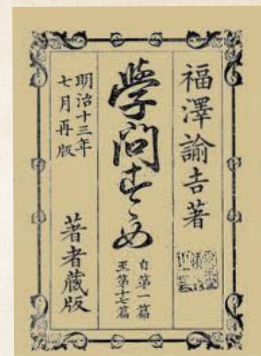 福澤諭吉著
学問すゝめ
自第一篇
至第十七篇
明治十三年
七月再版
著者藏版